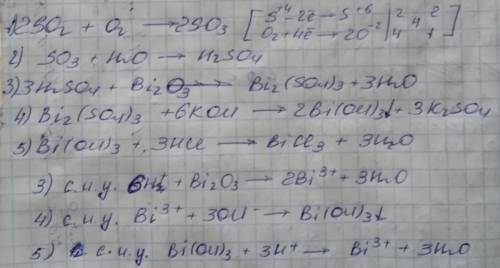 1) 2SO₂ + O₂ → 2SO₃ [S⁺⁴ - 2ē → S⁺⁶ | 2 | 2
O₂ + 4ē → 2O⁻² | 4 | 1]
2) SO₃ + H₂O → H₂SO₄
3) 3H₂SO₄ + Bi₂O₃ → Bi₂(SO₄)₃ + 3H₂O
4) Bi₂(SO₄)₃ + 6KOH → 2Bi(OH)₃↓ + 3K₂SO₄
5) Bi(OH)₃ + 3HCl → BiCl₃ + 3H₂O
3) с.и.у. 6H⁺ + Bi₂O₃ → 2Bi³⁺ + 3H₂O
4) с.и.у. Bi³⁺ + 3OH⁻ → Bi(OH)₃↓
5) с.и.у. Bi(OH)₃ + 3H⁺ → Bi³⁺ + 3H₂O